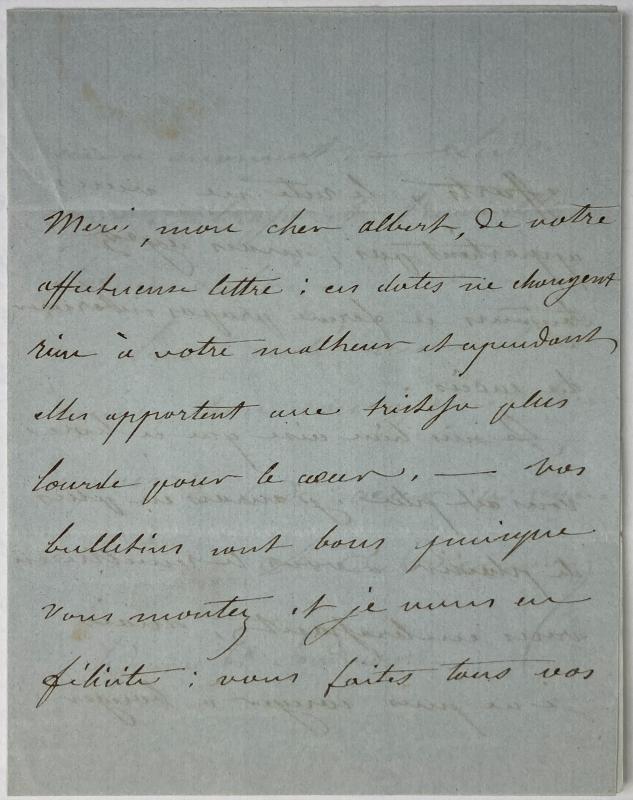 Merci, mon cher albert, de votre
affectueuse lettre : ces dates ne changent
rien à votre malheur et cependant
elles apportent une tristesse plus
lourde pour le cœur. — Vos
bulletins sont bons puisque
vous montez et je vous en
félicite : vous faites tous vos